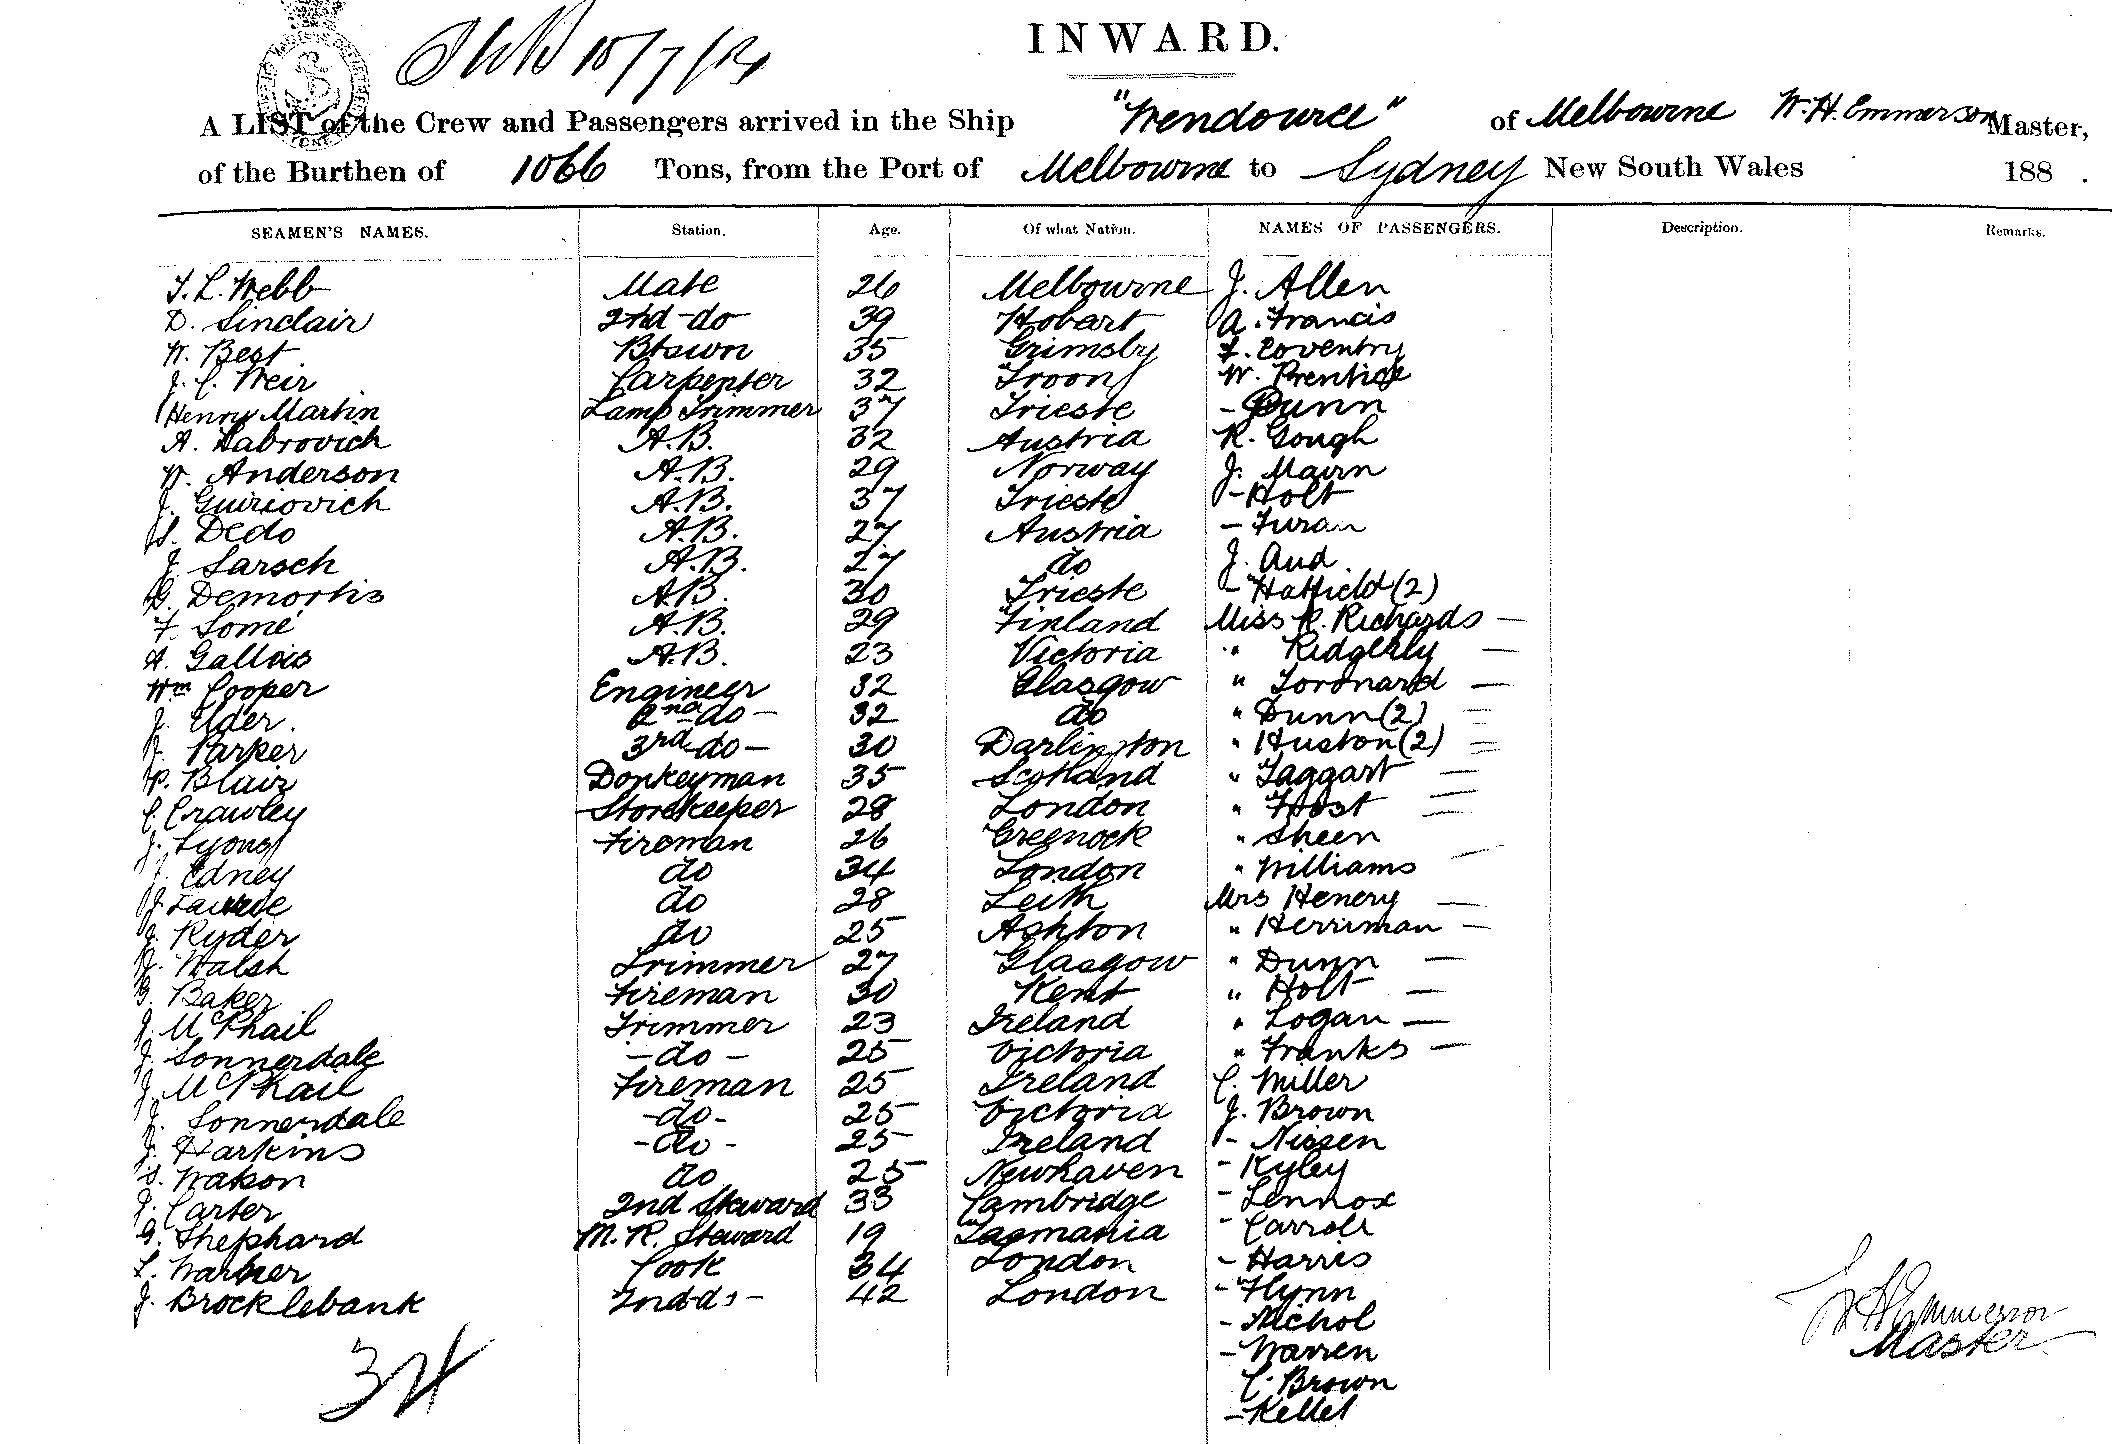 INWARD.
15/7/
A LIST of the Crew and Passengers arrived in the Ship "Wendouree" of Melbourne W. H. Emmerson Master,
of the Burthen of 1066 Tons, from the Port of Melbourne to Sydney New South Wales 188 .
SEAMEN'S NAMES. Station. Age. Of what Nation. NAMES OF PASSENGERS. Description. Remarks.
T. L. Webb Mate 26 Melbourne J. Allen
D. Sinclair 2nd do 39 Hobart A. Francis
W. Best Btswn 35 Grimsby F. Coventry
J. C. Weir Carpenter 32 Troon W. Prentice
Henry Martin Lamp Trimmer 37 Trieste - Dunn
A. Dabrovich A.B. 32 Austria R. Gough
W. Anderson A.B. 29 Norway J. Mavrn
J. Guiriovich A.B. 37 Trieste - Holt
S. Dedo A.B. 27 Austria - Furan
J. Sarsch A.B. 27 do J. Aud.
G. Demortis A.B. 30 Trieste - Hatfield (2)
F. Somé A.B. 29 Finland Miss R. Richards —
A. Gallois A.B. 23 Victoria " Ridgerly —
Wm Cooper Engineer 32 Glasgow " —
J. Elder. 2nd do - 32 do " Dunn (2) =
Parker 3rd do - 30 Darlington " Huston (2) =
Blair Donkeyman 35 Scotland " Taggart —
C. Crawley Storekeeper 28 London " —
J. Lyons Fireman 26 Greenock " Sheen
J. Edney do 34 London " Williams —
J. do 28 Leith Mrs Henery —
J. Ryder do 25 Ashton " Herriman —
Walsh Trimmer 27 Glasgow " Dunn —
G. Baker Fireman 30 Kent " Holt —
J. McPhail Trimmer 23 Ireland " Logan —
J. Sonnerdale - do - 25 Victoria " Franks —
J. McPhail Fireman 25 Ireland C. Miller
J. Sonnerdale - do - 25 Victoria J. Brown
J. Harkins - do - 25 Ireland - Nissen
S. Watson do 25 Newhaven - Kyley
J. Carter 2nd Steward 33 Cambridge - Lennox
G. Shephard M. R. Steward 19 Tasmania - Carroll
Warner Cook 34 London - Harris
J. Brocklebank 2nd do - 42 London - Flynn
- Nichol
- Warren
C. Brown
- Kellet
34
W H Emmerson
Master